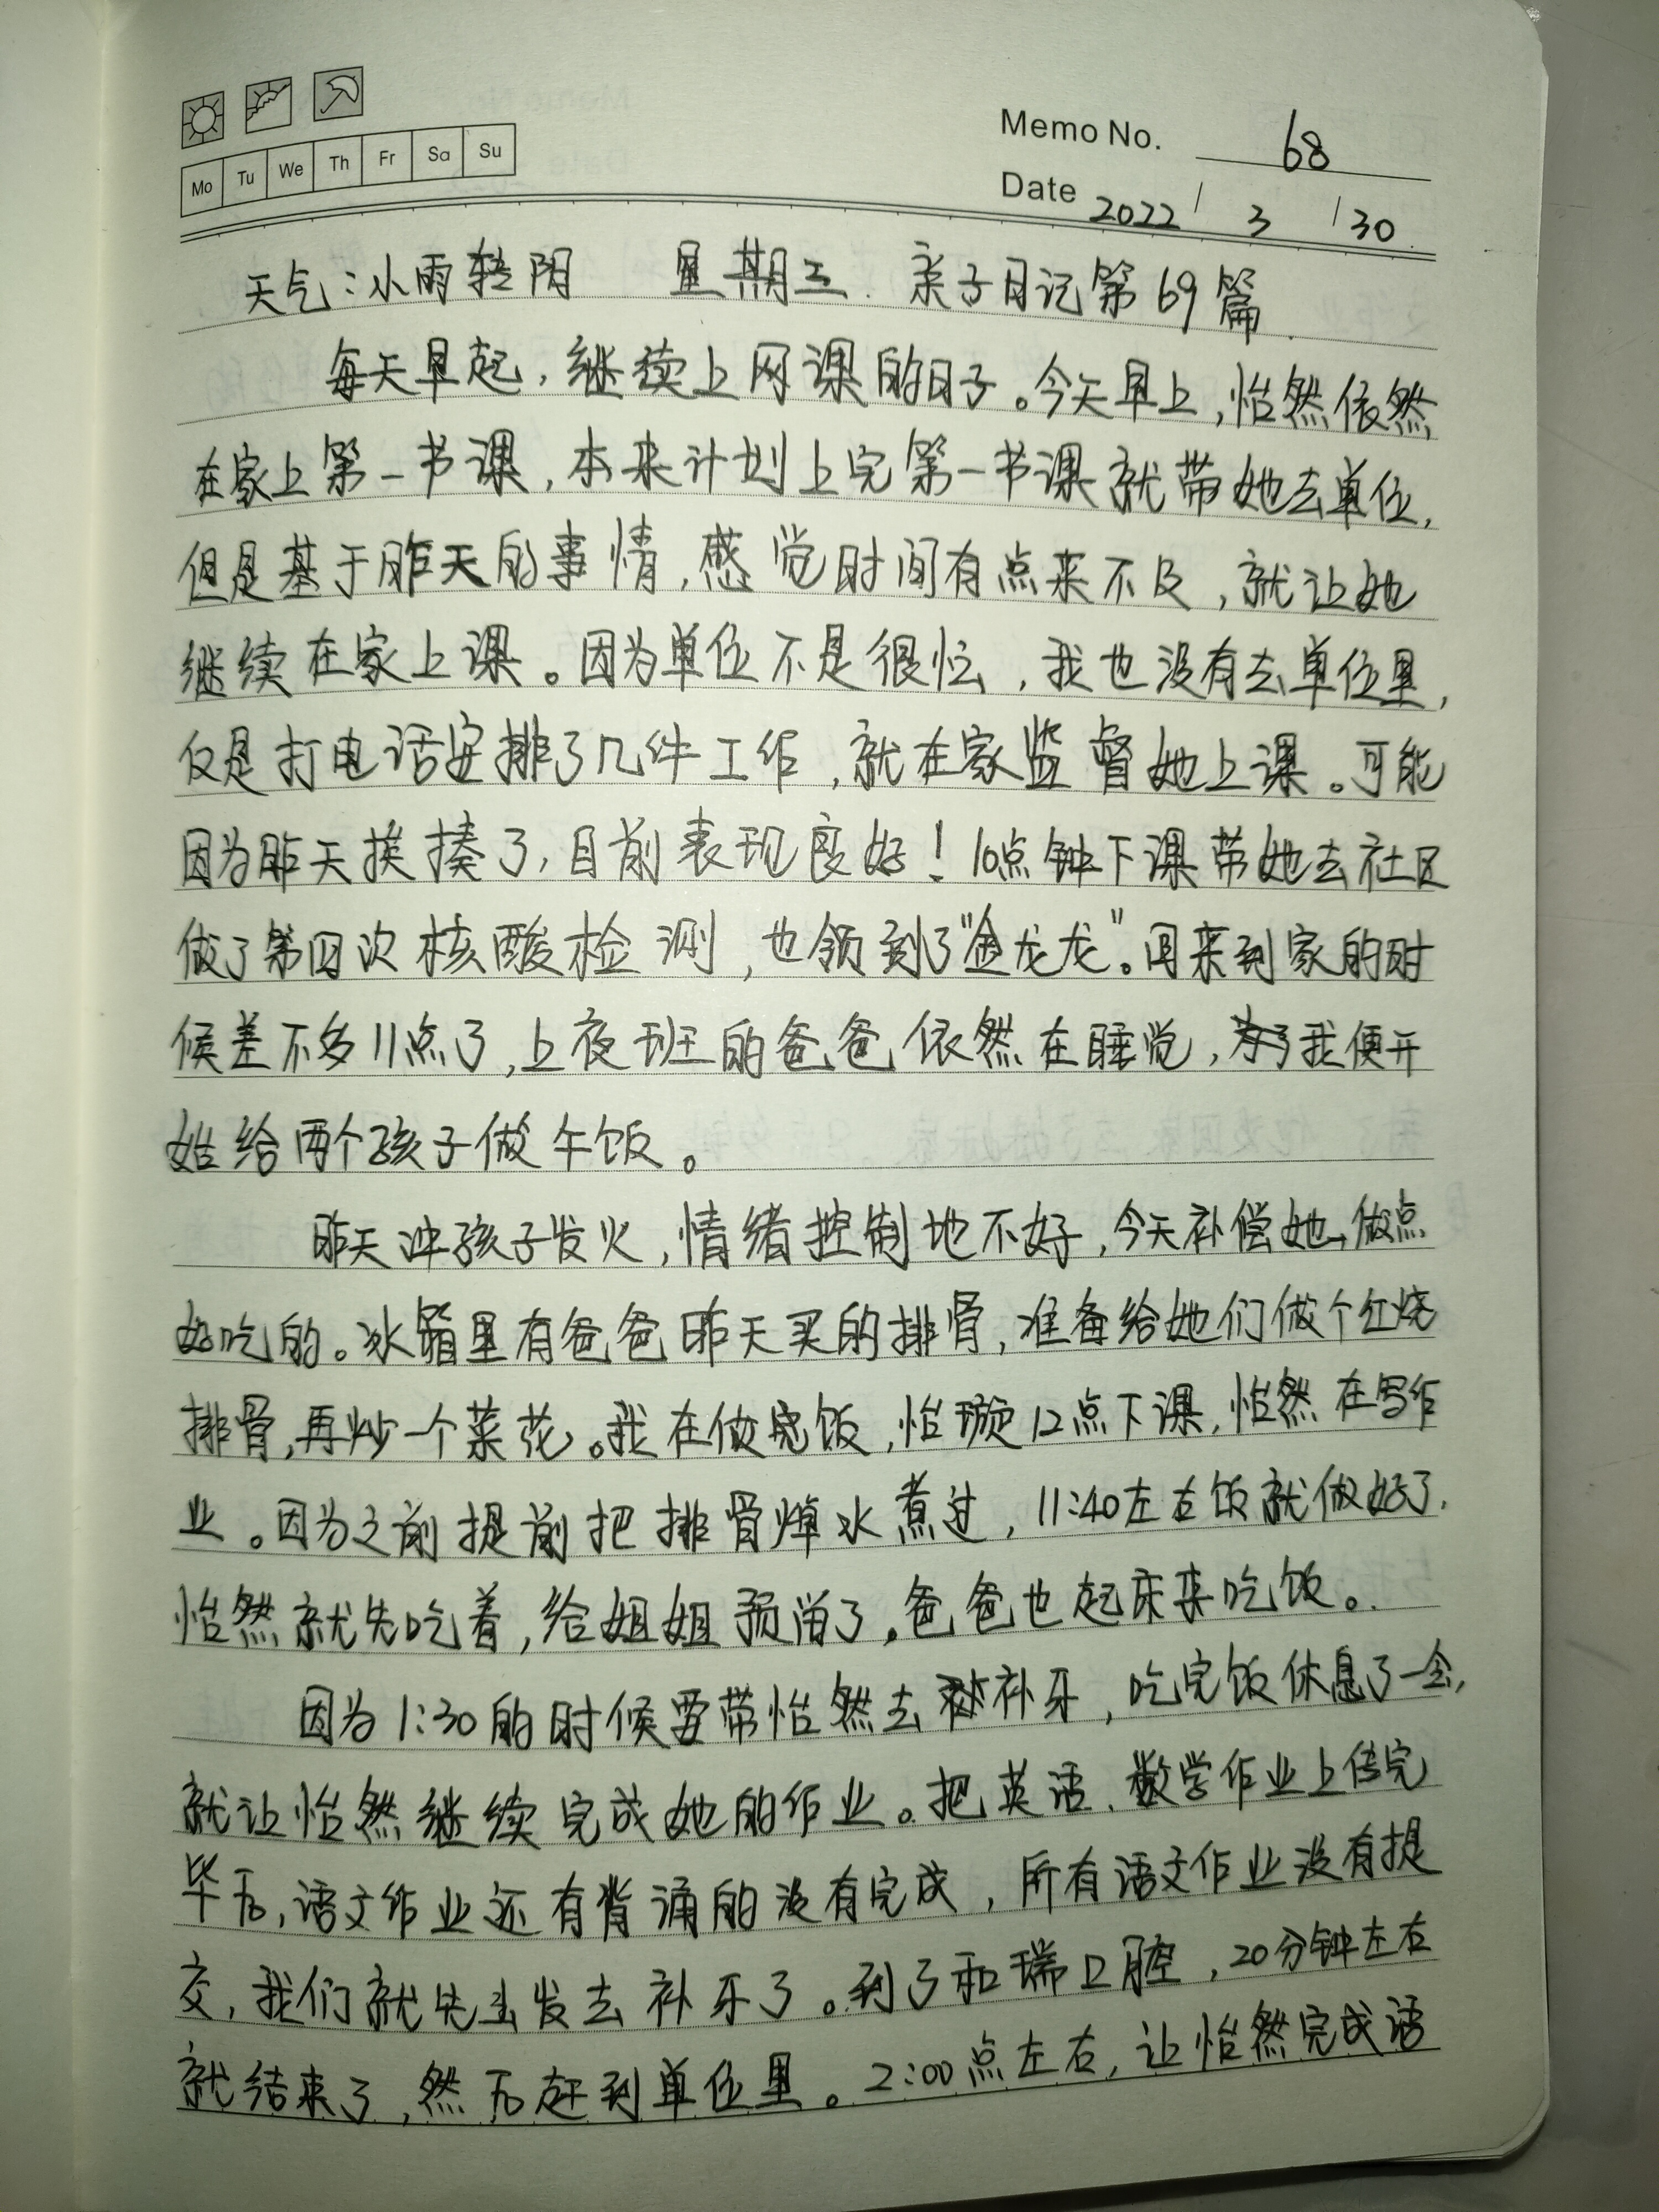 Memo No. 68
Mo Tu We Th Fr Sa Su
Date 2022 / 3 / 30
天气：小雨转阴 星期三. 亲子日记第69篇.
每天早起，继续上网课的日子。今天早上，怡然依然
在家上第一节课，本来计划上完第一节课就带她去单位，
但是基于昨天的事情，感觉时间有点来不及，就让她
继续在家上课。因为单位不是很忙，我也没有去单位里，
仅是打电话安排了几件工作，就在家监督她上课。可能
因为昨天挨揍了，目前表现良好！10点钟下课带她去社区
做了第四次核酸检测，也领到了“金龙龙”。回来到家的时
候差不多11点了，上夜班的爸爸依然在睡觉，我便开
始给两个孩子做午饭。
昨天冲孩子发火，情绪控制地不好，今天补偿她，做点
好吃的。冰箱里有爸爸昨天买的排骨，准备给她们做个红烧
排骨，再炒一个菜花。我在做完饭，怡璇12点下课，怡然在写作
业。因为之前提前把排骨焯水煮过，11:40左右饭就做好了.
怡然就先吃着，给姐姐预留了。爸爸也起床来吃饭。
因为1:30的时候要带怡然去补牙，吃完饭休息了一会，
就让怡然继续完成她的作业。把英语、数学作业上传完
毕后，语文作业还有背诵的没有完成，所有语文作业没有提
交，我们就先出发去补牙了。到了和瑞口腔，20分钟左右
就结束了，然后赶到单位里。2:00点左右，让怡然完成语